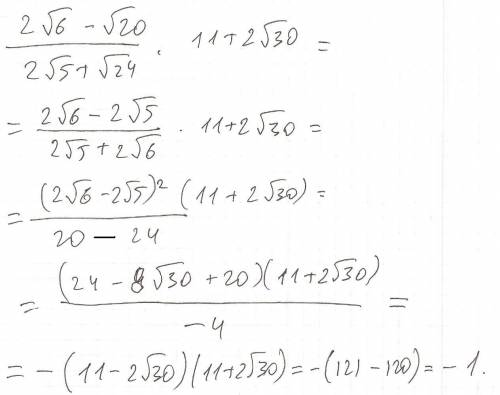 (2√6 - √20)/(2√5 + √24) · 11 + 2√30 =
= (2√6 - 2√5)/(2√5 + 2√6) · 11 + 2√30 =
= (2√6 - 2√5)² (11 + 2√30)/(20 - 24) =
= (24 - 8√30 + 20)(11 + 2√30)/(-4) =
= -(11 - 2√30)(11 + 2√30) = -(121 - 120) = -1.